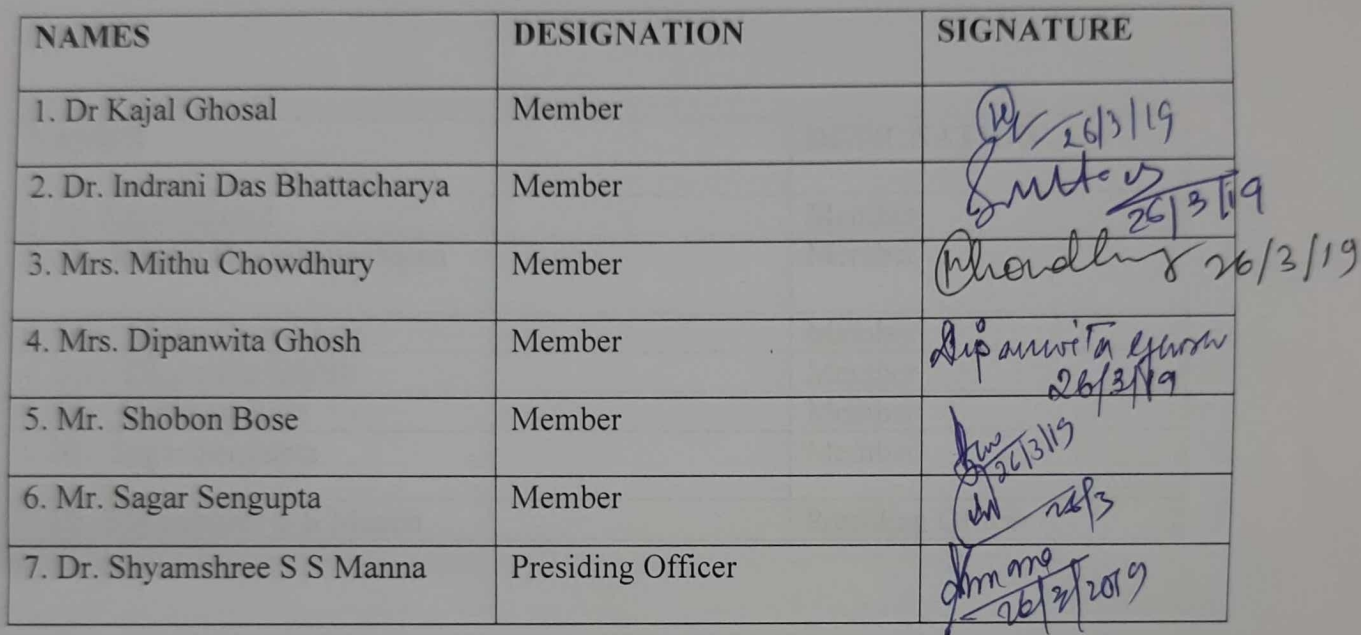 NAMES DESIGNATION SIGNATURE
1. Dr Kajal Ghosal Member 26/3/19
2. Dr. Indrani Das Bhattacharya Member
26/3/19
3. Mrs. Mithu Chowdhury Member Chowdhury 26/3/19
4. Mrs. Dipanwita Ghosh Member Dipanwita Ghosh
26/3/19
5. Mr. Shobon Bose Member
26/3/19
6. Mr. Sagar Sengupta Member 26/3
7. Dr. Shyamshree S S Manna Presiding Officer
26/3/2019